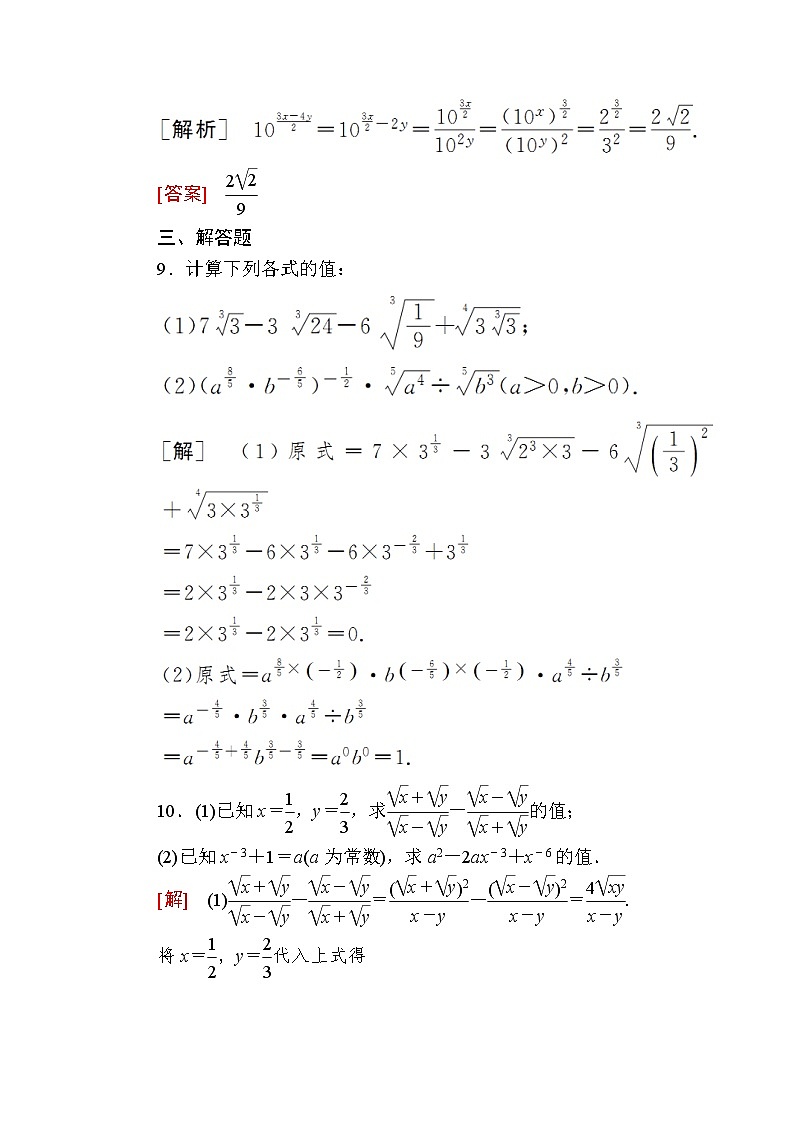 [解析] 10^{\frac{3x-4y}{2}}=10^{\frac{3x}{2}-2y}=\frac{10^{\frac{3x}{2}}}{10^{2y}}=\frac{(10^x)^{\frac{3}{2}}}{(10^y)^2}=\frac{2^{\frac{3}{2}}}{3^2}=\frac{2\sqrt{2}}{9}.
[答案] \frac{2\sqrt{2}}{9}
三、解答题
9．计算下列各式的值：
(1)7\sqrt[3]{3}-3\sqrt[3]{24}-6\sqrt[3]{\frac{1}{9}}+\sqrt[4]{3\sqrt[3]{3}};
(2)(a^{\frac{8}{5}}·b^{-\frac{6}{5}})^{-\frac{1}{2}}·\sqrt[5]{a^4}÷\sqrt[5]{b^3}(a>0,b>0).
[解] (1)原式=7×3^{\frac{1}{3}}-3\sqrt[3]{2^3×3}-6\sqrt[3]{\left(\frac{1}{3}\right)^2}
+\sqrt[4]{3×3^{\frac{1}{3}}}
=7×3^{\frac{1}{3}}-6×3^{\frac{1}{3}}-6×3^{-\frac{2}{3}}+3^{\frac{1}{3}}
=2×3^{\frac{1}{3}}-2×3×3^{-\frac{2}{3}}
=2×3^{\frac{1}{3}}-2×3^{\frac{1}{3}}=0.
(2)原式=a^{\frac{8}{5}×(-\frac{1}{2})}·b^{(-\frac{6}{5})×(-\frac{1}{2})}·a^{\frac{4}{5}}÷b^{\frac{3}{5}}
=a^{-\frac{4}{5}}·b^{\frac{3}{5}}·a^{\frac{4}{5}}÷b^{\frac{3}{5}}
=a^{-\frac{4}{5}+\frac{4}{5}}b^{\frac{3}{5}-\frac{3}{5}}=a^0b^0=1.
10．(1)已知x=\frac{1}{2}，y=\frac{2}{3}，求\frac{\sqrt{x}+\sqrt{y}}{\sqrt{x}-\sqrt{y}}-\frac{\sqrt{x}-\sqrt{y}}{\sqrt{x}+\sqrt{y}}的值；
(2)已知x^{-3}+1=a(a为常数)，求a^2-2ax^{-3}+x^{-6}的值．
[解] (1)\frac{\sqrt{x}+\sqrt{y}}{\sqrt{x}-\sqrt{y}}-\frac{\sqrt{x}-\sqrt{y}}{\sqrt{x}+\sqrt{y}}=\frac{(\sqrt{x}+\sqrt{y})^2}{x-y}-\frac{(\sqrt{x}-\sqrt{y})^2}{x-y}=\frac{4\sqrt{xy}}{x-y}.
将x=\frac{1}{2}，y=\frac{2}{3}代入上式得